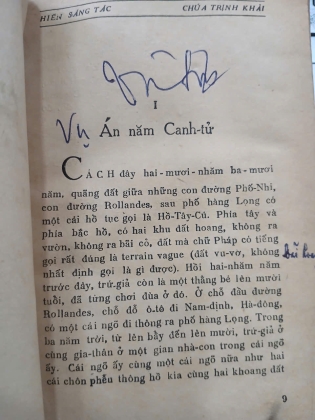 HIÊN SÁNG TÁC CHÚA TRỊNH KHẢI
I
Vụ Án năm Canh-tử
CÁCH đây hai-mươi-nhăm ba-mươi
năm, quãng đất giữa những con đường Phố-Nhi,
con đường Rollandes, sau phố hàng Lọng có
một cái hồ tục gọi là Hồ-Tây-Cú. Phía tây và
phía bắc hồ, có hai khu đất hoang, không ra
vườn, không ra bãi cỏ, đất mà chữ Pháp có tiếng
gọi rất đúng là terrain vague (đất vu-vơ, không
nhất định gọi là gì được). Hồi hai-nhăm năm
trước đây, trứ-giả còn là một thằng bé lên mười
tuổi, đã từng chơi đùa ở đó. Ở chỗ đầu đường
Rollandes, chỗ đỗ ô.tô đi Nam-định, Hà-đông,
có một cái ngõ đi thông ra phố hàng Lọng. Trong
ba năm trời, từ lên bảy đến lên mười, trứ-giả ở
cùng gia-thân ở một gian nhà-con trong cái ngõ
ấy. Cái ngõ ấy cùng một cái ngõ nữa như hai
cái chón phễu thông hồ kia cùng hai khoang đất
9